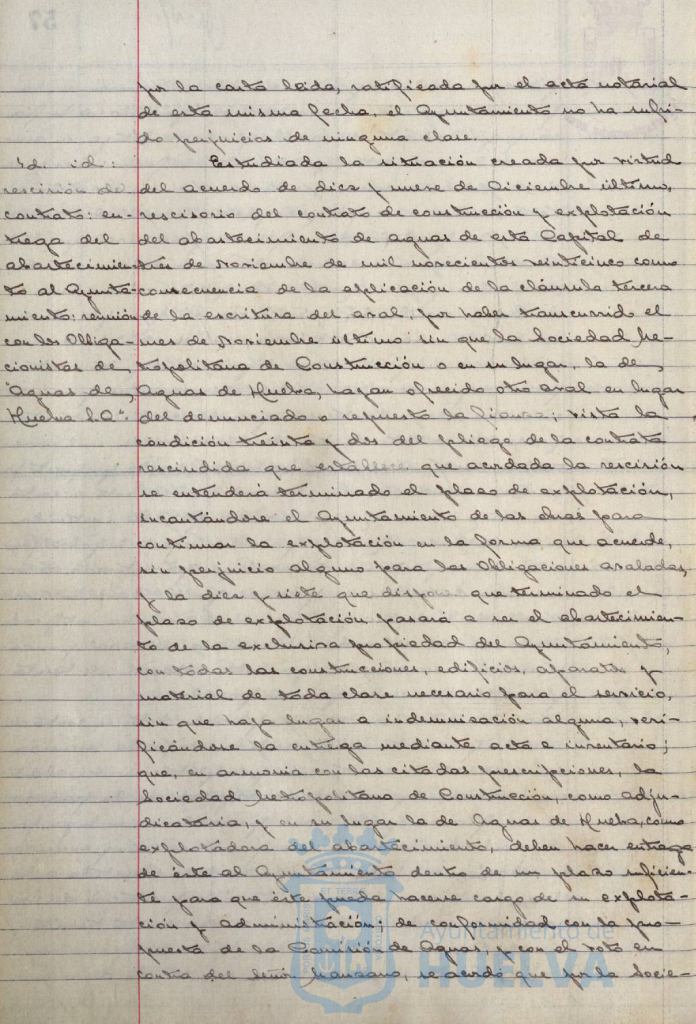 por la carta leida, ratificada por el acta notarial
de esta misma fecha, el Ayuntamiento no ha sufri-
do perjuicios de ninguna clase.
Id. id:
rescisión de
contrato: en-
trega del
abastecimien-
to al Ayunta-
miento: reunión
con los Obliga-
cionistas de
"Aguas de
Huelva S.A".
Estudiada la situación creada por virtud
del acuerdo de diez y nueve de Diciembre último,
rescisorio del contrato de construcción y explotación
del abastecimiento de aguas de esta Capital de
tres de Noviembre de mil novecientos veinticinco como
consecuencia de la aplicación de la cláusula tercera
de la escritura del aval, por haber transcurrido el
mes de Noviembre último sin que la Sociedad Me-
tropolitana de Construcción o en su lugar, la de
Aguas de Huelva, hayan ofrecido otro aval en lugar
del denunciado o repuesto la fianza; vista la
condición treinta y dos del pliego de la contrata
rescindida que establece que acordada la rescisión
se entenderá terminado el plazo de explotación,
incautándose el Ayuntamiento de las obras para
continuar la explotación en la forma que acuerde,
sin perjuicio alguno para las Obligaciones avaladas,
y la diez y siete que dispone que terminado el
plazo de explotación pasará a ser el abastecimien-
to de la exclusiva propiedad del Ayuntamiento,
con todas las construcciones, edificios, aparatos y
material de toda clase necesario para el servicio,
sin que haya lugar a indemnización alguna, veri-
ficándose la entrega mediante acta e inventario;
que, en armonía con las citadas prescripciones, la
Sociedad Metropolitana de Construcción, como adju-
dicataria, y en su lugar la de Aguas de Huelva, como
explotadora del abastecimiento, deben hacer entrega
de éste al Ayuntamiento dentro de un plazo suficien-
te para que éste pueda hacerse cargo de su explota-
ción y administración; de conformidad con la pro-
puesta de la Comisión de Aguas, y con el voto en
contra del Señor Manzano, se acordó que por la Socie-
Ayuntamiento de
HUELVA